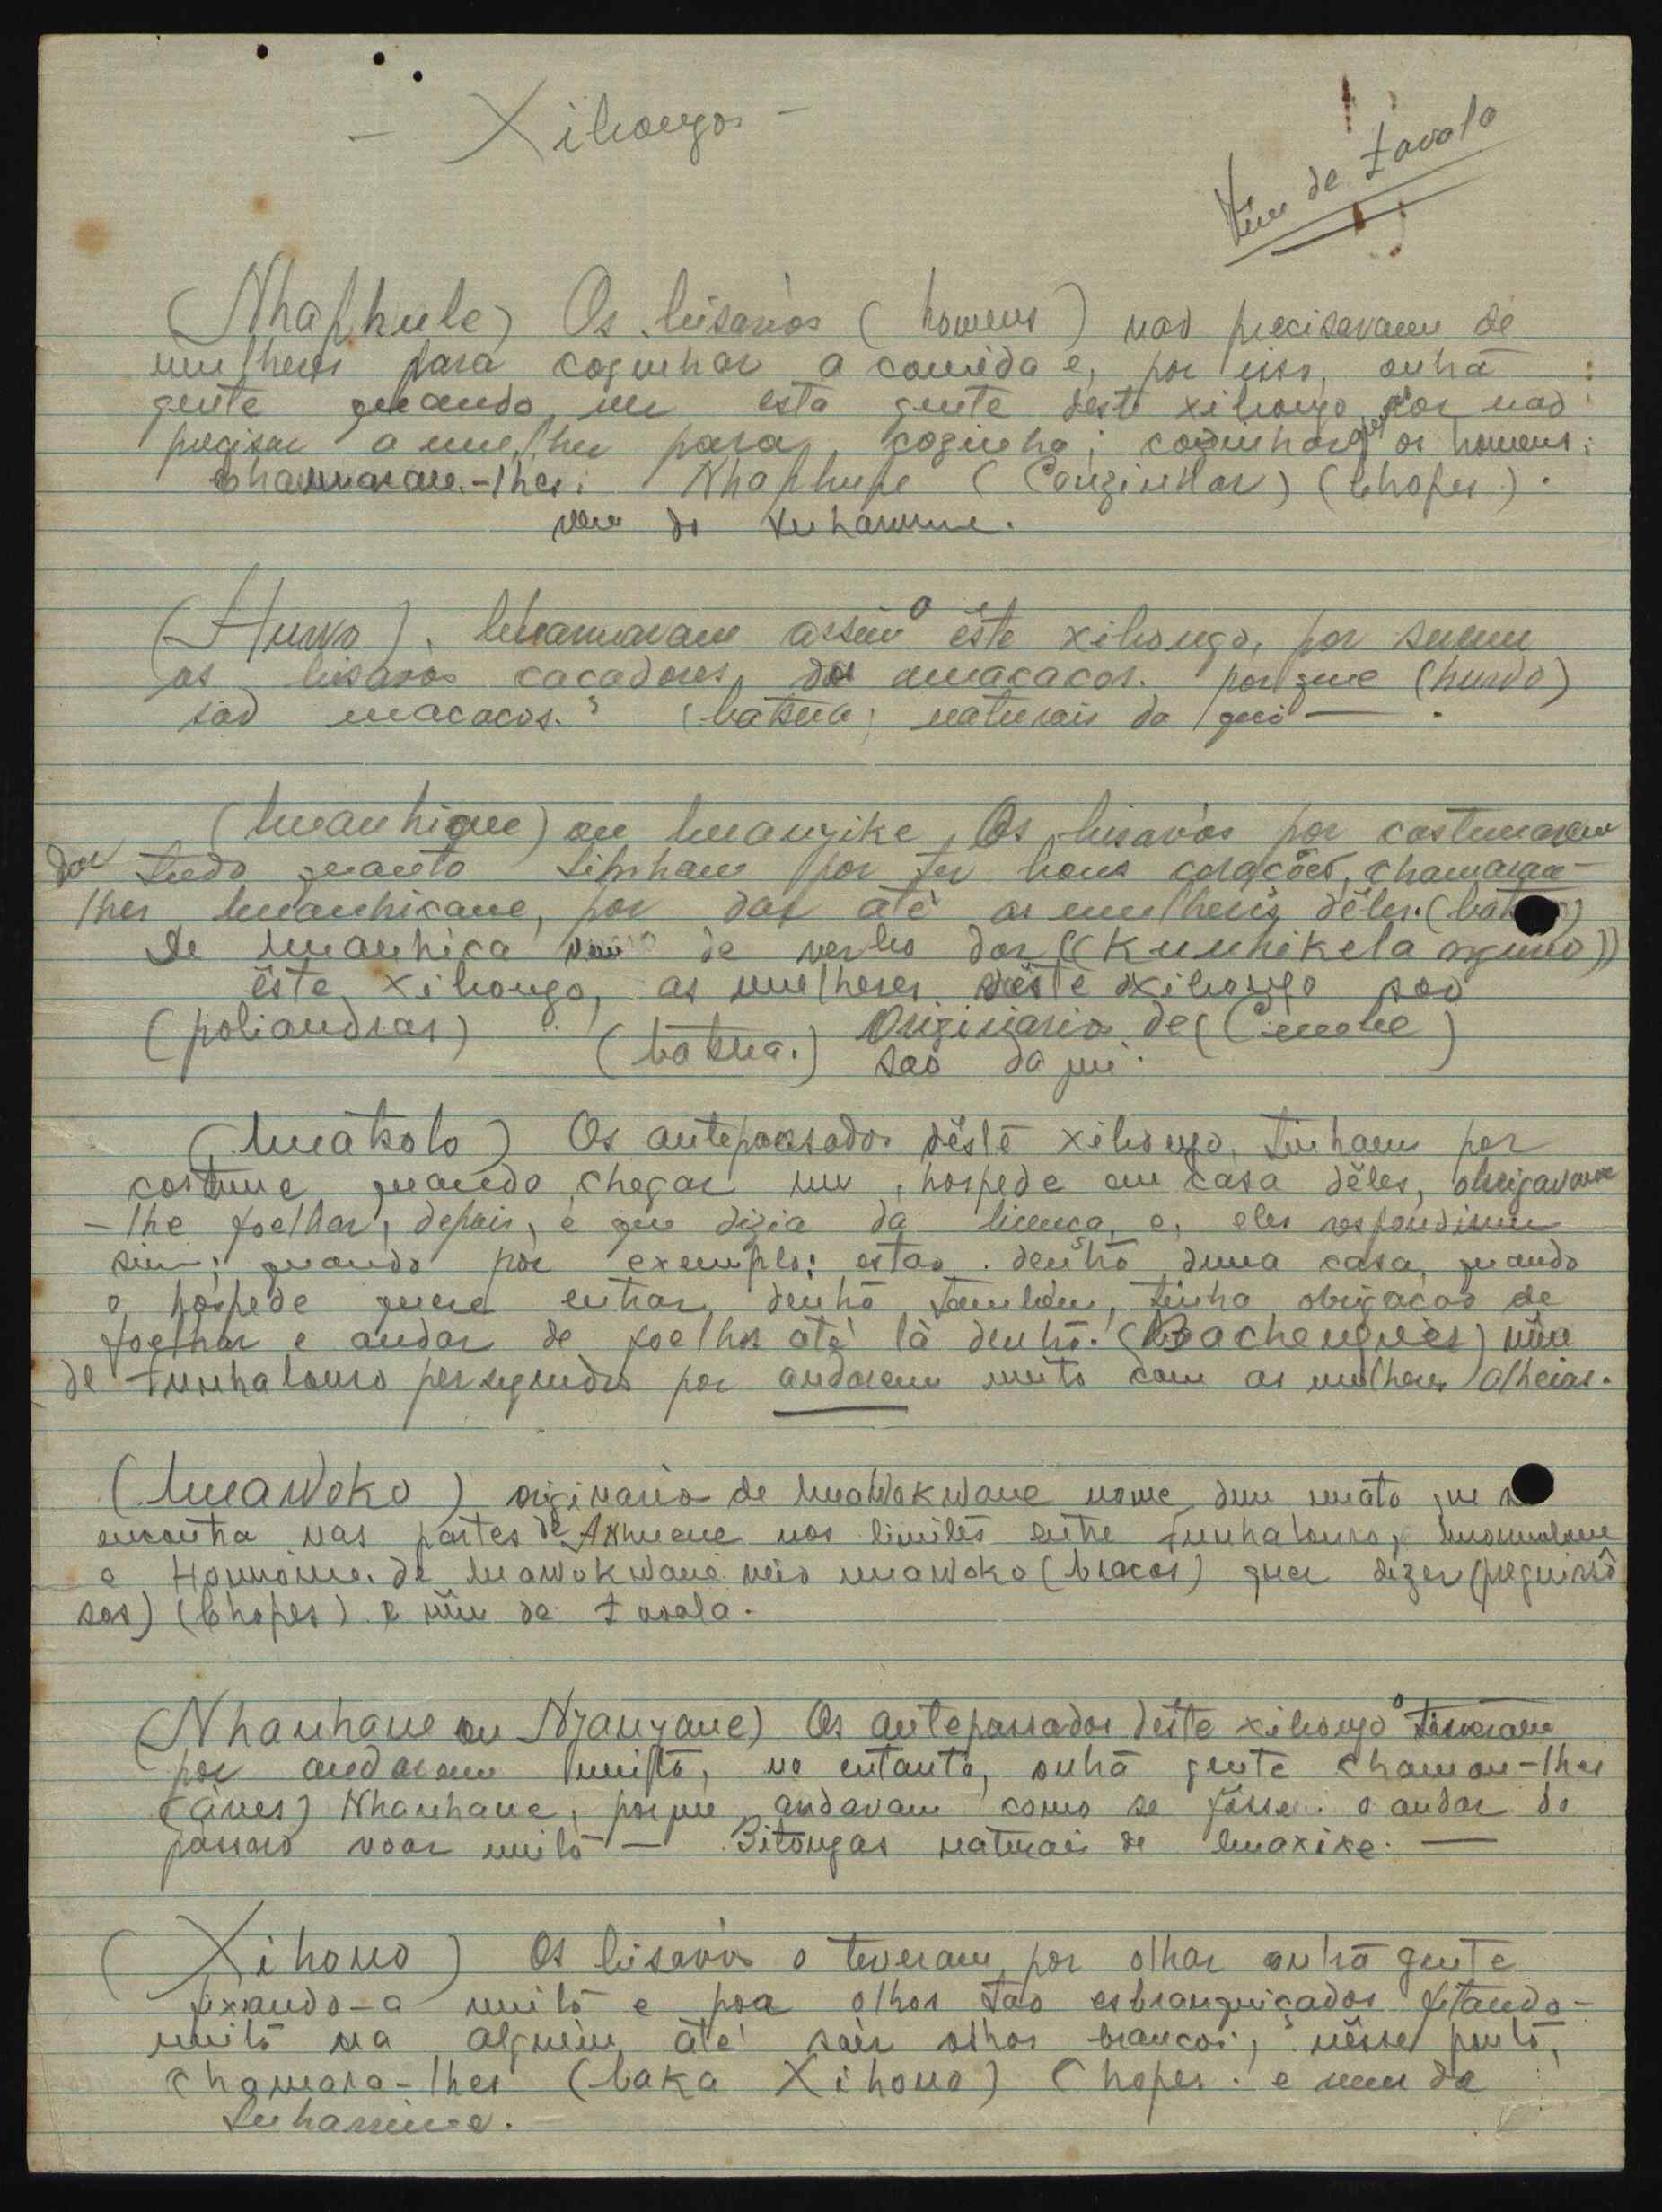 - Xibongos -
Vêm de Zavala
(Nhaphule) Os bisavós (homens) naõ precisavam de
mulheres para coginhar a comida e, por isso, outra
gente quando ver esta gente deste xibongo, por naõ
precisar a mulher para coginha; coginharem os homens;
Chamaram-lhes: Nhaphule (Conzinhar) (Chopes).
vem de Inharrime.
(Hurvo), Chamaravam assim o êste xibongo, por serem
os bisavos caçadores, dos amacacos. porque (hurvo)
saõ macacos. (batsua) naturais da qui — .
(Manhique) ou Manyike Os bisavós por costumarem
dar tudo quanto tinham por ter bons corações, chamaram-
lhes Manhicane, por dar até as mulheris dêles. (batsua)
de Manhica vem de verbo dar ((Kunhikela
êste xibongo, as mulheres dêste xibongo saõ
(poliandras) (batsua.) Originario de (Cimbe)
saõ da qui.
(Matsolo) Os antepassados dêste xibongo, tinham por
costume quando chegar um hospede em casa dêles, obrigavam
-lhe joelhar, depois, é que dizia da licença, e, eles respondiam
sim; quando por exemplo: estaõ dentro duma casa, quando
o hospede quere entrar dentro tambêm, tinha obrigaçaõ de
joelhar e andar de joelhos até lá dentro. (Bachengues) vêm
de Funhalouro perseguidos por andarem muito com as mulheres alheias.
(Mawoko) originario de Mawokwane nome dum mato que se
encontra nas partes de nos limites entre Funhalouro,
e Homoíne. de Mawokwane veio mawoko (bracos) quer dizer (preguiçô
sos) (Chopes). e vêm de Zavala.
(Nhanhane ou Nyanyane) Os antepassados dêste xibongo o tiveram
por andarem muito, no entanto, outra gente chamou-lhes
(aves) Nhanhane, porque andavam como se fosse o andar do
passaro voar muito — Bitongas naturais de Maxixe. —
(Xihono) Os bisavós o teveram por olhar outra gente
fixando-a muito e por olhos tao esbranquiçados fitando-
muito na alguêm até sair olhos brancos; nêsse ponto,
chamara-lhes (baka Xihono) Chopes. e vem de
Inharrime.